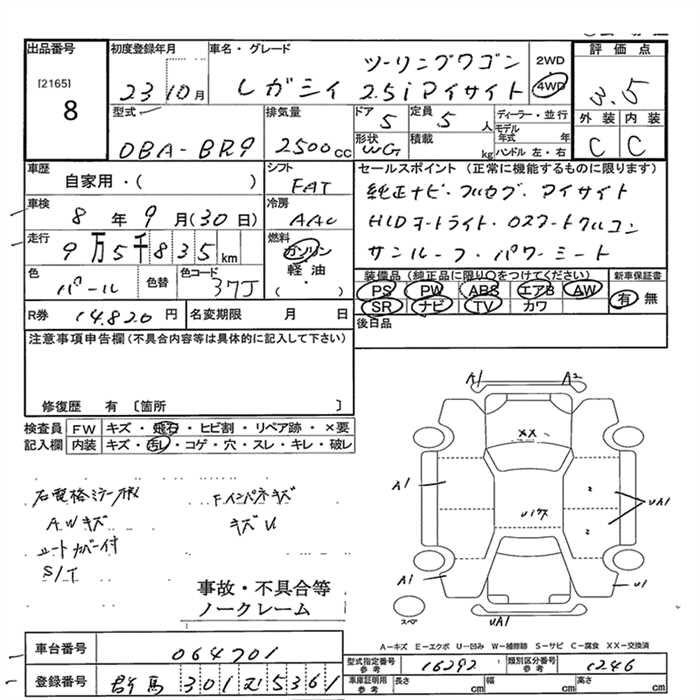 出品番号
[2165]
8
初度登録年月
23 10月
車名・グレード
ツーリングワゴン
レガシイ 2.5i アイサイト
2WD
4WD
評価点
3.5
外装 内装
C C
型式
DBA-BR9
排気量
2500cc
ドア 5
定員 5 人
形状 WG
積載 kg
ディーラー・並行
モデル年式 年
ハンドル 左・右
車歴
自家用・( )
シフト
FAT
車検
8年9月(30日)
冷房
AAC
走行
9万5千835km
燃料
ガソリン
軽油
・
( )
色
パール
色替
色コード
37J
セールスポイント (正常に機能するものに限ります)
純正ナビ・フルセグ・アイサイト
HIDオートライト・
サンルーフ・パワーシート
装備品(純正品に限り○をつけてください)
PS PW ABS エアB AW
SR ナビ TV カワ
新車保証書
有 無
後日品
R券 14,820円
名変期限 月 日
注意事項申告欄(不具合内容等は具体的に記入して下さい)
修復歴 有〔箇所 〕
検査員記入欄
FW キズ・飛石・ヒビ割・リペア跡・×要
内装 キズ・汚レ・コゲ・穴・スレ・キレ・破レ
AWキズ
シートカバー付
S/T
Fインパネキズ
キズU
事故・不具合等
ノークレーム
A1 A2
XX
A1
UA1
A1
U1
UA1
スペア
A-キズ E-エクボ U-凹み W-補修跡 S-サビ C-腐食 XX-交換済
車台番号 064701
登録番号 群馬 301 む 5361
型式指定番号参考 16292
類別区分番号参考 1246
車庫証明用参考 長さ cm 幅 cm 高さ cm